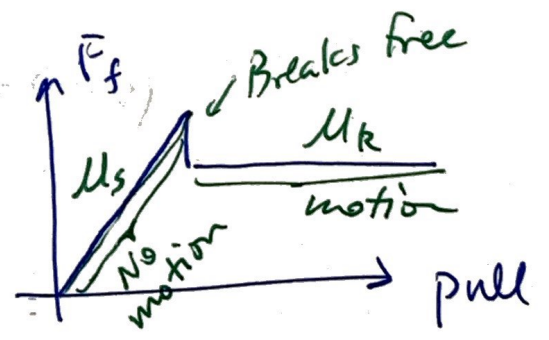 F_f
Breaks free
μ_s
μ_k
No
motion
motion
pull